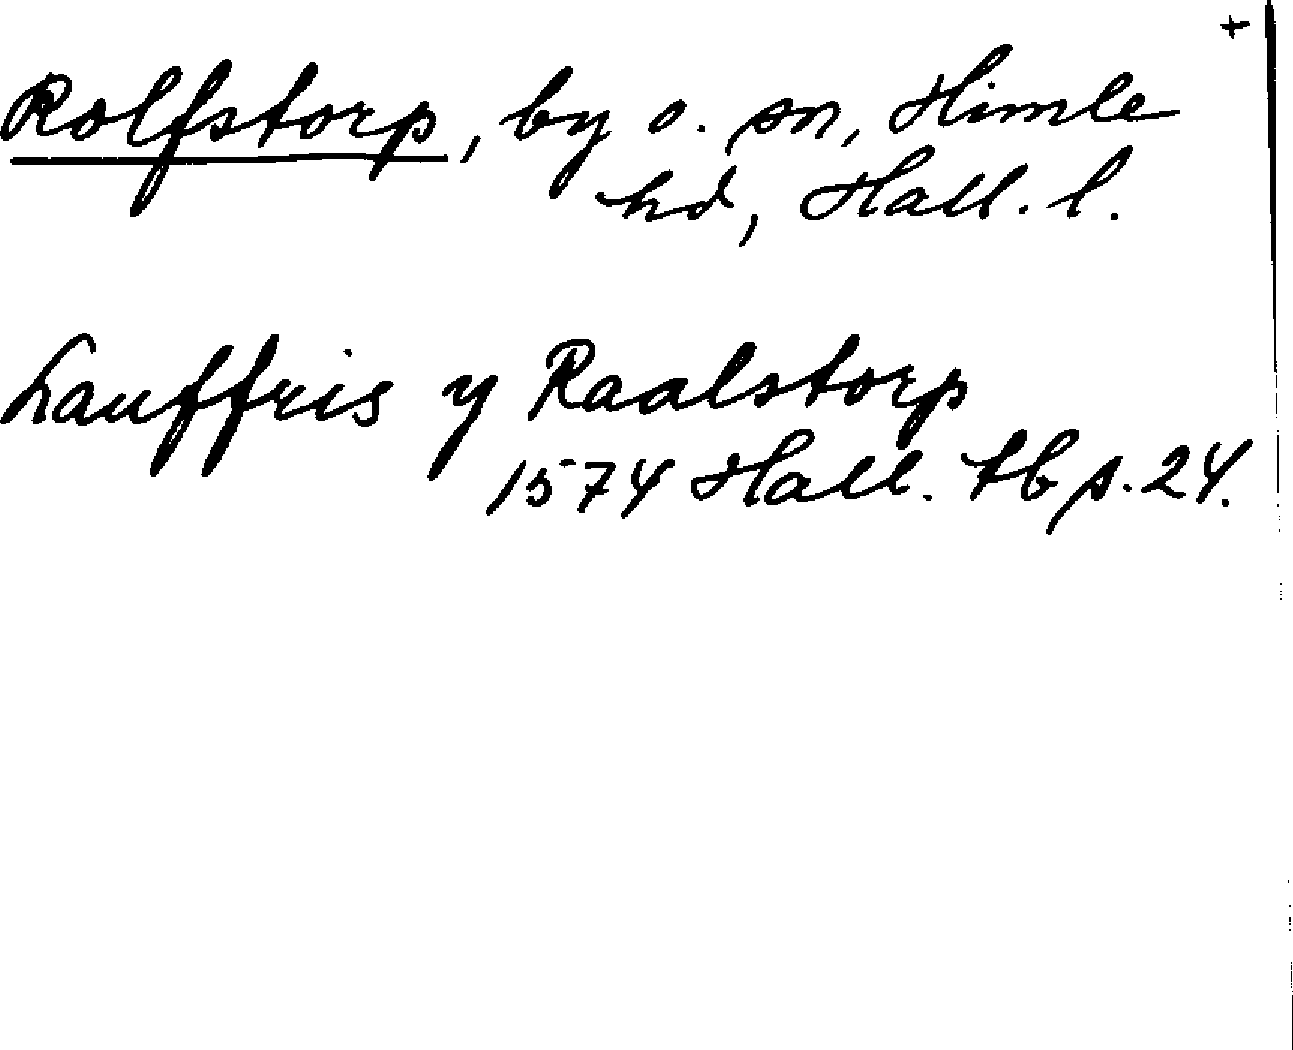 +
Rolfstorp, by o. sn, Himle
hd, Hall. l.
Lauffris y Raalstorp
1574 Hall. tb s. 24.